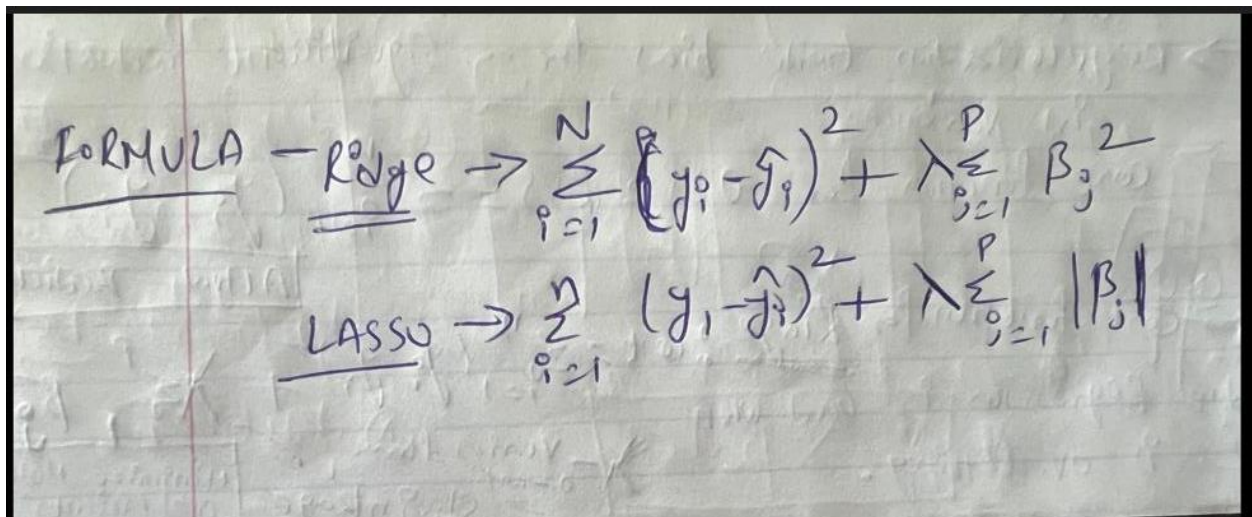 FORMULA - Ridge → ∑_{i=1}^{N} (y_i - ŷ_i)^2 + λ ∑_{j=1}^{P} β_j^2
LASSO → ∑_{i=1}^{n} (y_1 - ŷ_i)^2 + λ ∑_{j=1}^{P} |β_j|